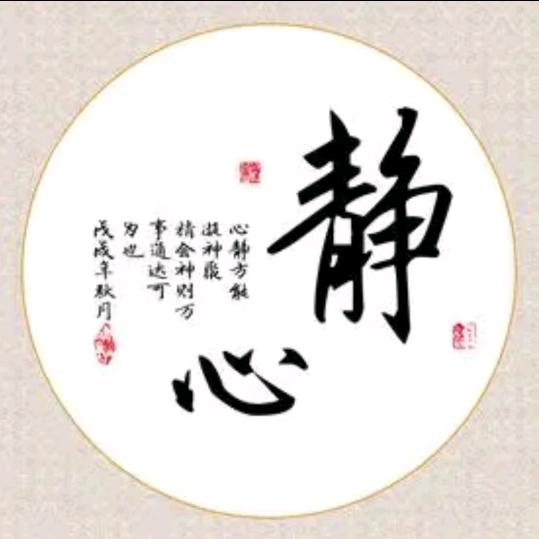 静心
心静方能
凝神聚
精会神则万
事通达可
为也
戊戌年秋月